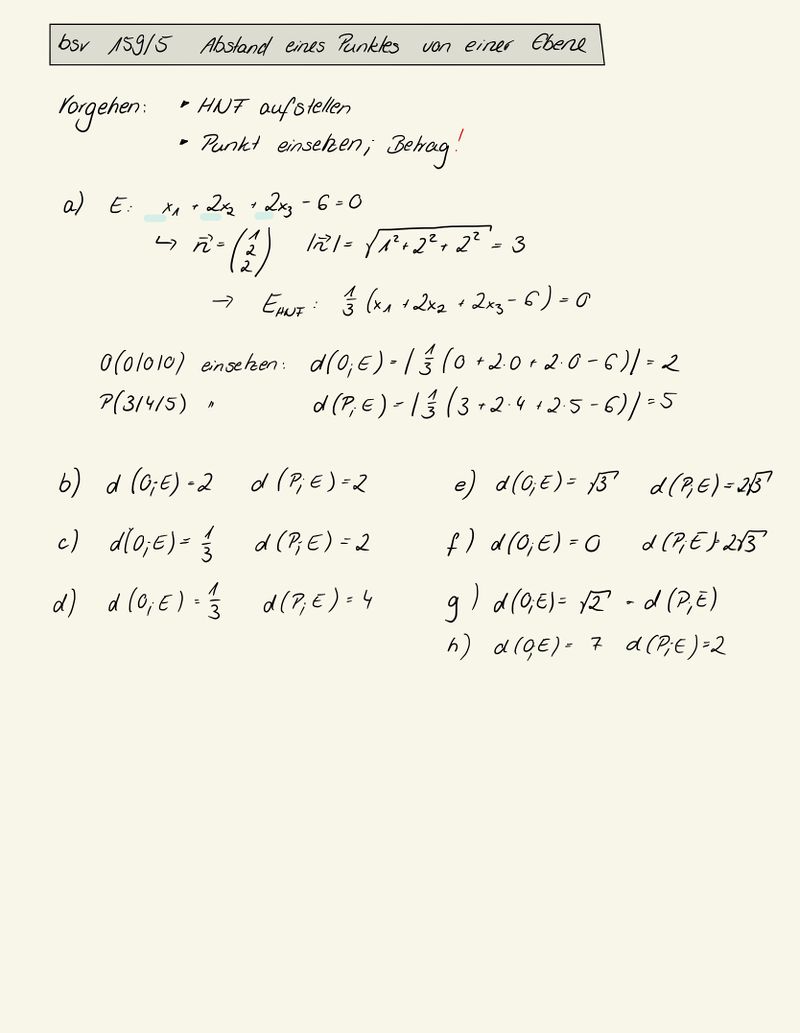 bsv 159/5 Abstand eines Punktes von einer Ebene
Vorgehen: • HNF aufstellen
• Punkt einsetzen; Betrag!
a) E: x₁ + 2x₂ + 2x₃ - 6 = 0
↳ n⃗ = (1 2 2) |n⃗| = √(1² + 2² + 2²) = 3
→ E_HNF : 1/3 (x₁ + 2x₂ + 2x₃ - 6) = 0
O(0|0|0) einsetzen: d(O;E) = |1/3 (0 + 2·0 + 2·0 - 6)| = 2
P(3|4|5) " d(P;E) = |1/3 (3 + 2·4 + 2·5 - 6)| = 5
b) d(O;E) = 2 d(P;E) = 2
c) d(O;E) = 1/3 d(P;E) = 2
d) d(O;E) = 1/3 d(P;E) = 4
e) d(O;E) = √3 d(P;E) = 2√3
f) d(O;E) = 0 d(P;E) = 2√3
g) d(O;E) = √2 = d(P;E)
h) d(O;E) = 7 d(P;E) = 2